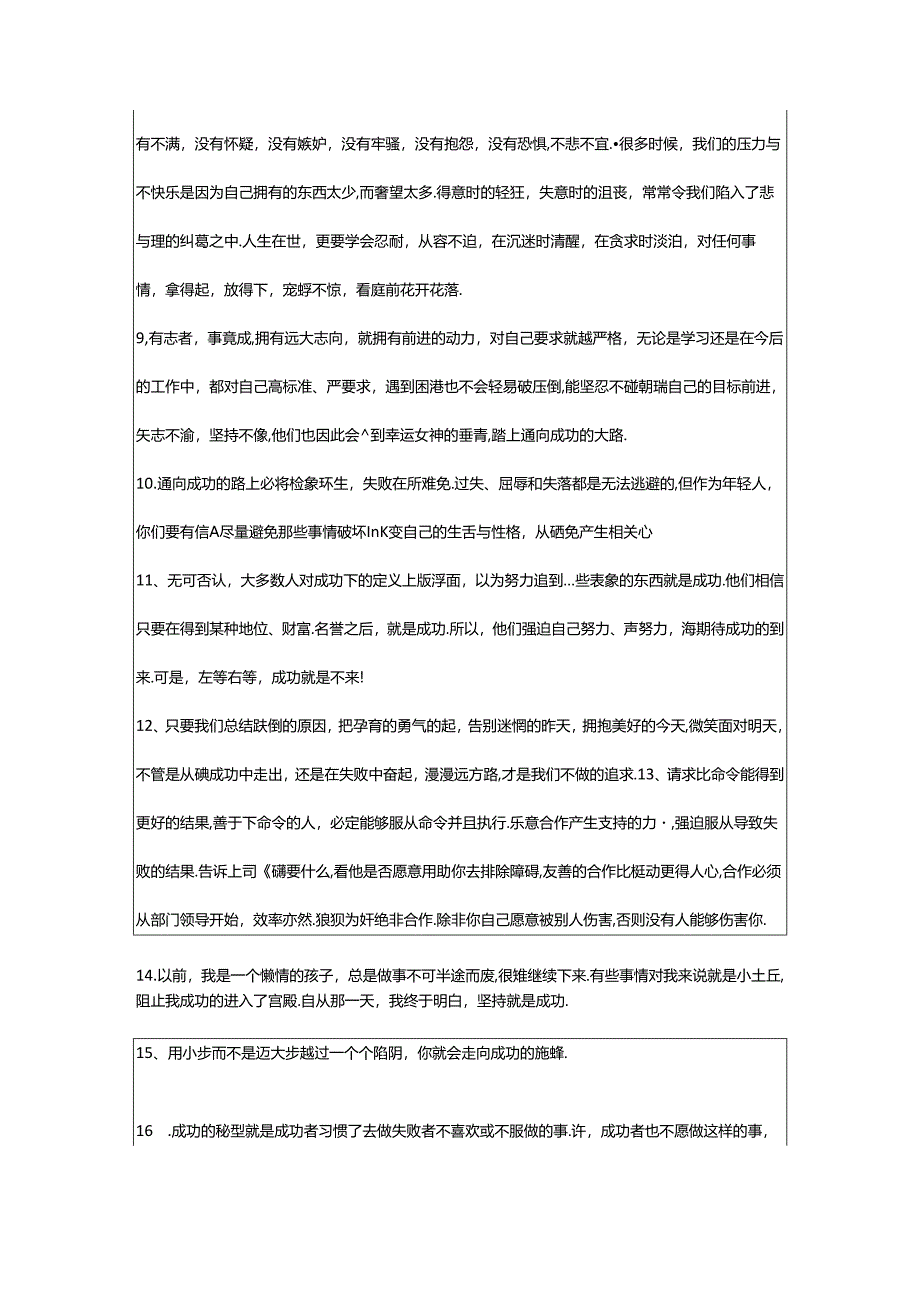 有不满，没有怀疑，没有嫉妒，没有牢骚，没有抱怨，没有恐惧,不悲不宜.•很多时候，我们的压力与
不快乐是因为自己拥有的东西太少,而奢望太多.得意时的轻狂，失意时的沮丧，常常令我们陷入了悲
与理的纠葛之中.人生在世，更要学会忍耐，从容不迫，在沉迷时清醒，在贪求时淡泊，对任何事
情，拿得起，放得下，宠蜉不惊，看庭前花开花落.
9,有志者，事竟成,拥有远大志向，就拥有前进的动力，对自己要求就越严格，无论是学习还是在今后
的工作中，都对自己高标准、严要求，遇到困港也不会轻易破压倒,能坚忍不碰朝瑞自己的目标前进，
矢志不渝，坚持不像,他们也因此会^到幸运女神的垂青,踏上通向成功的大路.
10.通向成功的路上必将检象环生，失败在所难免.过失、屈辱和失落都是无法逃避的,但作为年轻人，
你们要有信A尽量避免那些事情破坏InK变自己的生舌与性格，从硒免产生相关心
11、无可否认，大多数人对成功下的定义上版浮面，以为努力追到...些表象的东西就是成功.他们相信
只要在得到某种地位、财富.名誉之后，就是成功.所以，他们强迫自己努力、声努力，海期待成功的到
来.可是，左等右等，成功就是不来!
12、只要我们总结趺倒的原因，把孕育的勇气的起，告别迷惘的昨天，拥抱美好的今天,微笑面对明天，
不管是从碘成功中走出，还是在失败中奋起，漫漫远方路,才是我们不做的追求.13、请求比命令能得到
更好的结果,善于下命令的人，必定能够服从命令并且执行.乐意合作产生支持的力・,强迫服从导致失
败的结果.告诉上司《礴要什么,看他是否愿意用助你去排除障碍,友善的合作比梃动更得人心,合作必须
从部门领导开始，效率亦然.狼狈为奸绝非合作.除非你自己愿意被别人伤害,否则没有人能够伤害你.
14.以前，我是一个懒情的孩子，总是做事不可半途而废,很雉继续下来.有些事情对我来说就是小土丘,
阻止我成功的进入了宫殿.自从那一天，我终于明白，坚持就是成功.
15、用小步而不是迈大步越过一个个陷阴，你就会走向成功的施蜂.
16 .成功的秘型就是成功者习惯了去做失败者不喜欢或不服做的事.许，成功者也不愿做这样的事，